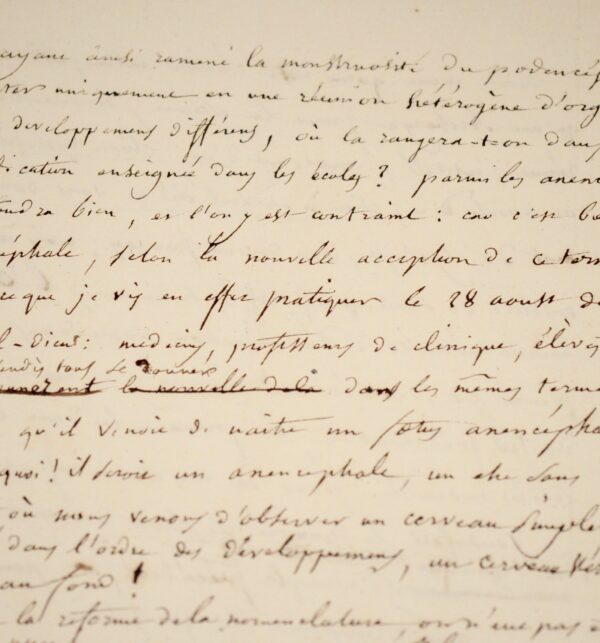 ayant ainsi ramené la monstruosité du podencép
rer uniquement en une réunion hétérogène d'org
développemens différens, où la rangera-t-on dans
ication enseignée dans les écoles ? parmi les anen
udra bien, et l'on y est contraint : car c'est b
éphale, selon la nouvelle acception de ce term
ce que je vis en effet pratiquer le 28 aoust d
l-dieu : médecins, professeurs de clinique, élèves
tous se donner
la nouvelle de la dans les mêmes terme
qu'il venoit de naître un fœtus anencépha
quoi ! il seroit un anencéphale, un être sans
où nous venons d'observer un cerveau simple
dans l'ordre des développemens, un cerveau
au fond !
la réforme de la nomenclature, pas